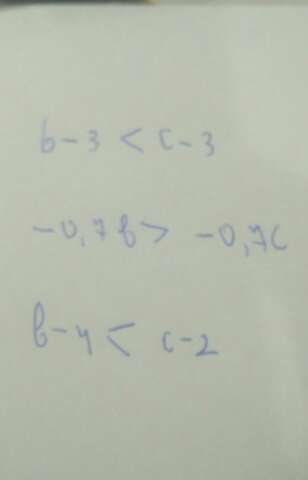 b-3 < c-3
-0,7b > -0,7c
b-4 < c-2